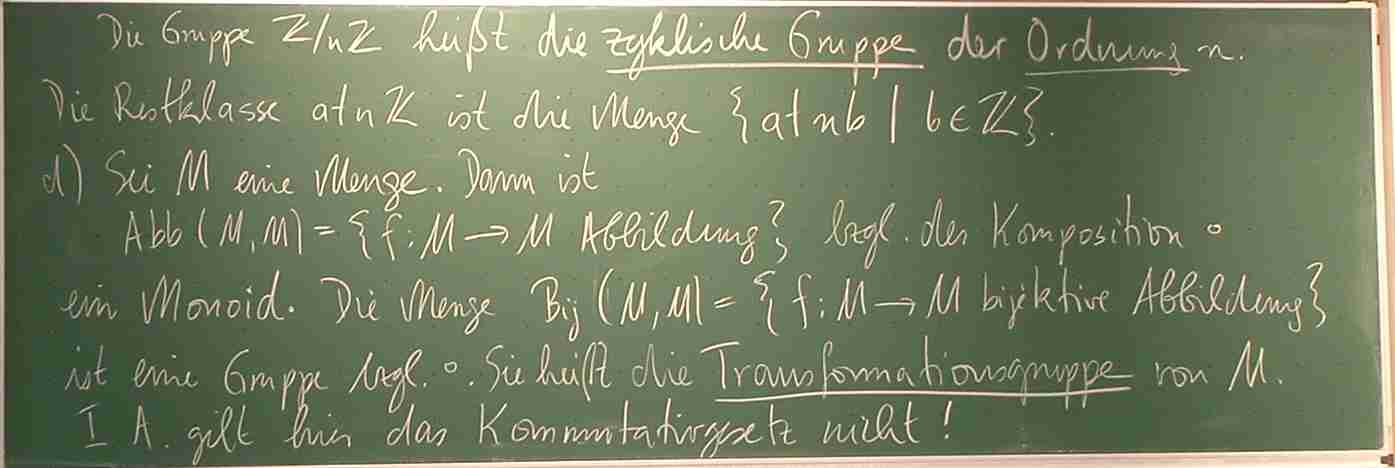 Die Gruppe ℤ/nℤ heißt die zyklische Gruppe der Ordnung n.
Die Restklasse a+nℤ ist die Menge {a+nb | b∈ℤ}.
d) Sei M eine Menge. Dann ist
Abb(M,M) = {f: M → M Abbildung} bzgl. der Komposition ∘
ein Monoid. Die Menge Bij(M,M) = {f: M → M bijektive Abbildung}
ist eine Gruppe bzgl. ∘. Sie heißt die Transformationsgruppe von M.
I A. gilt hier das Kommutativgesetz nicht!